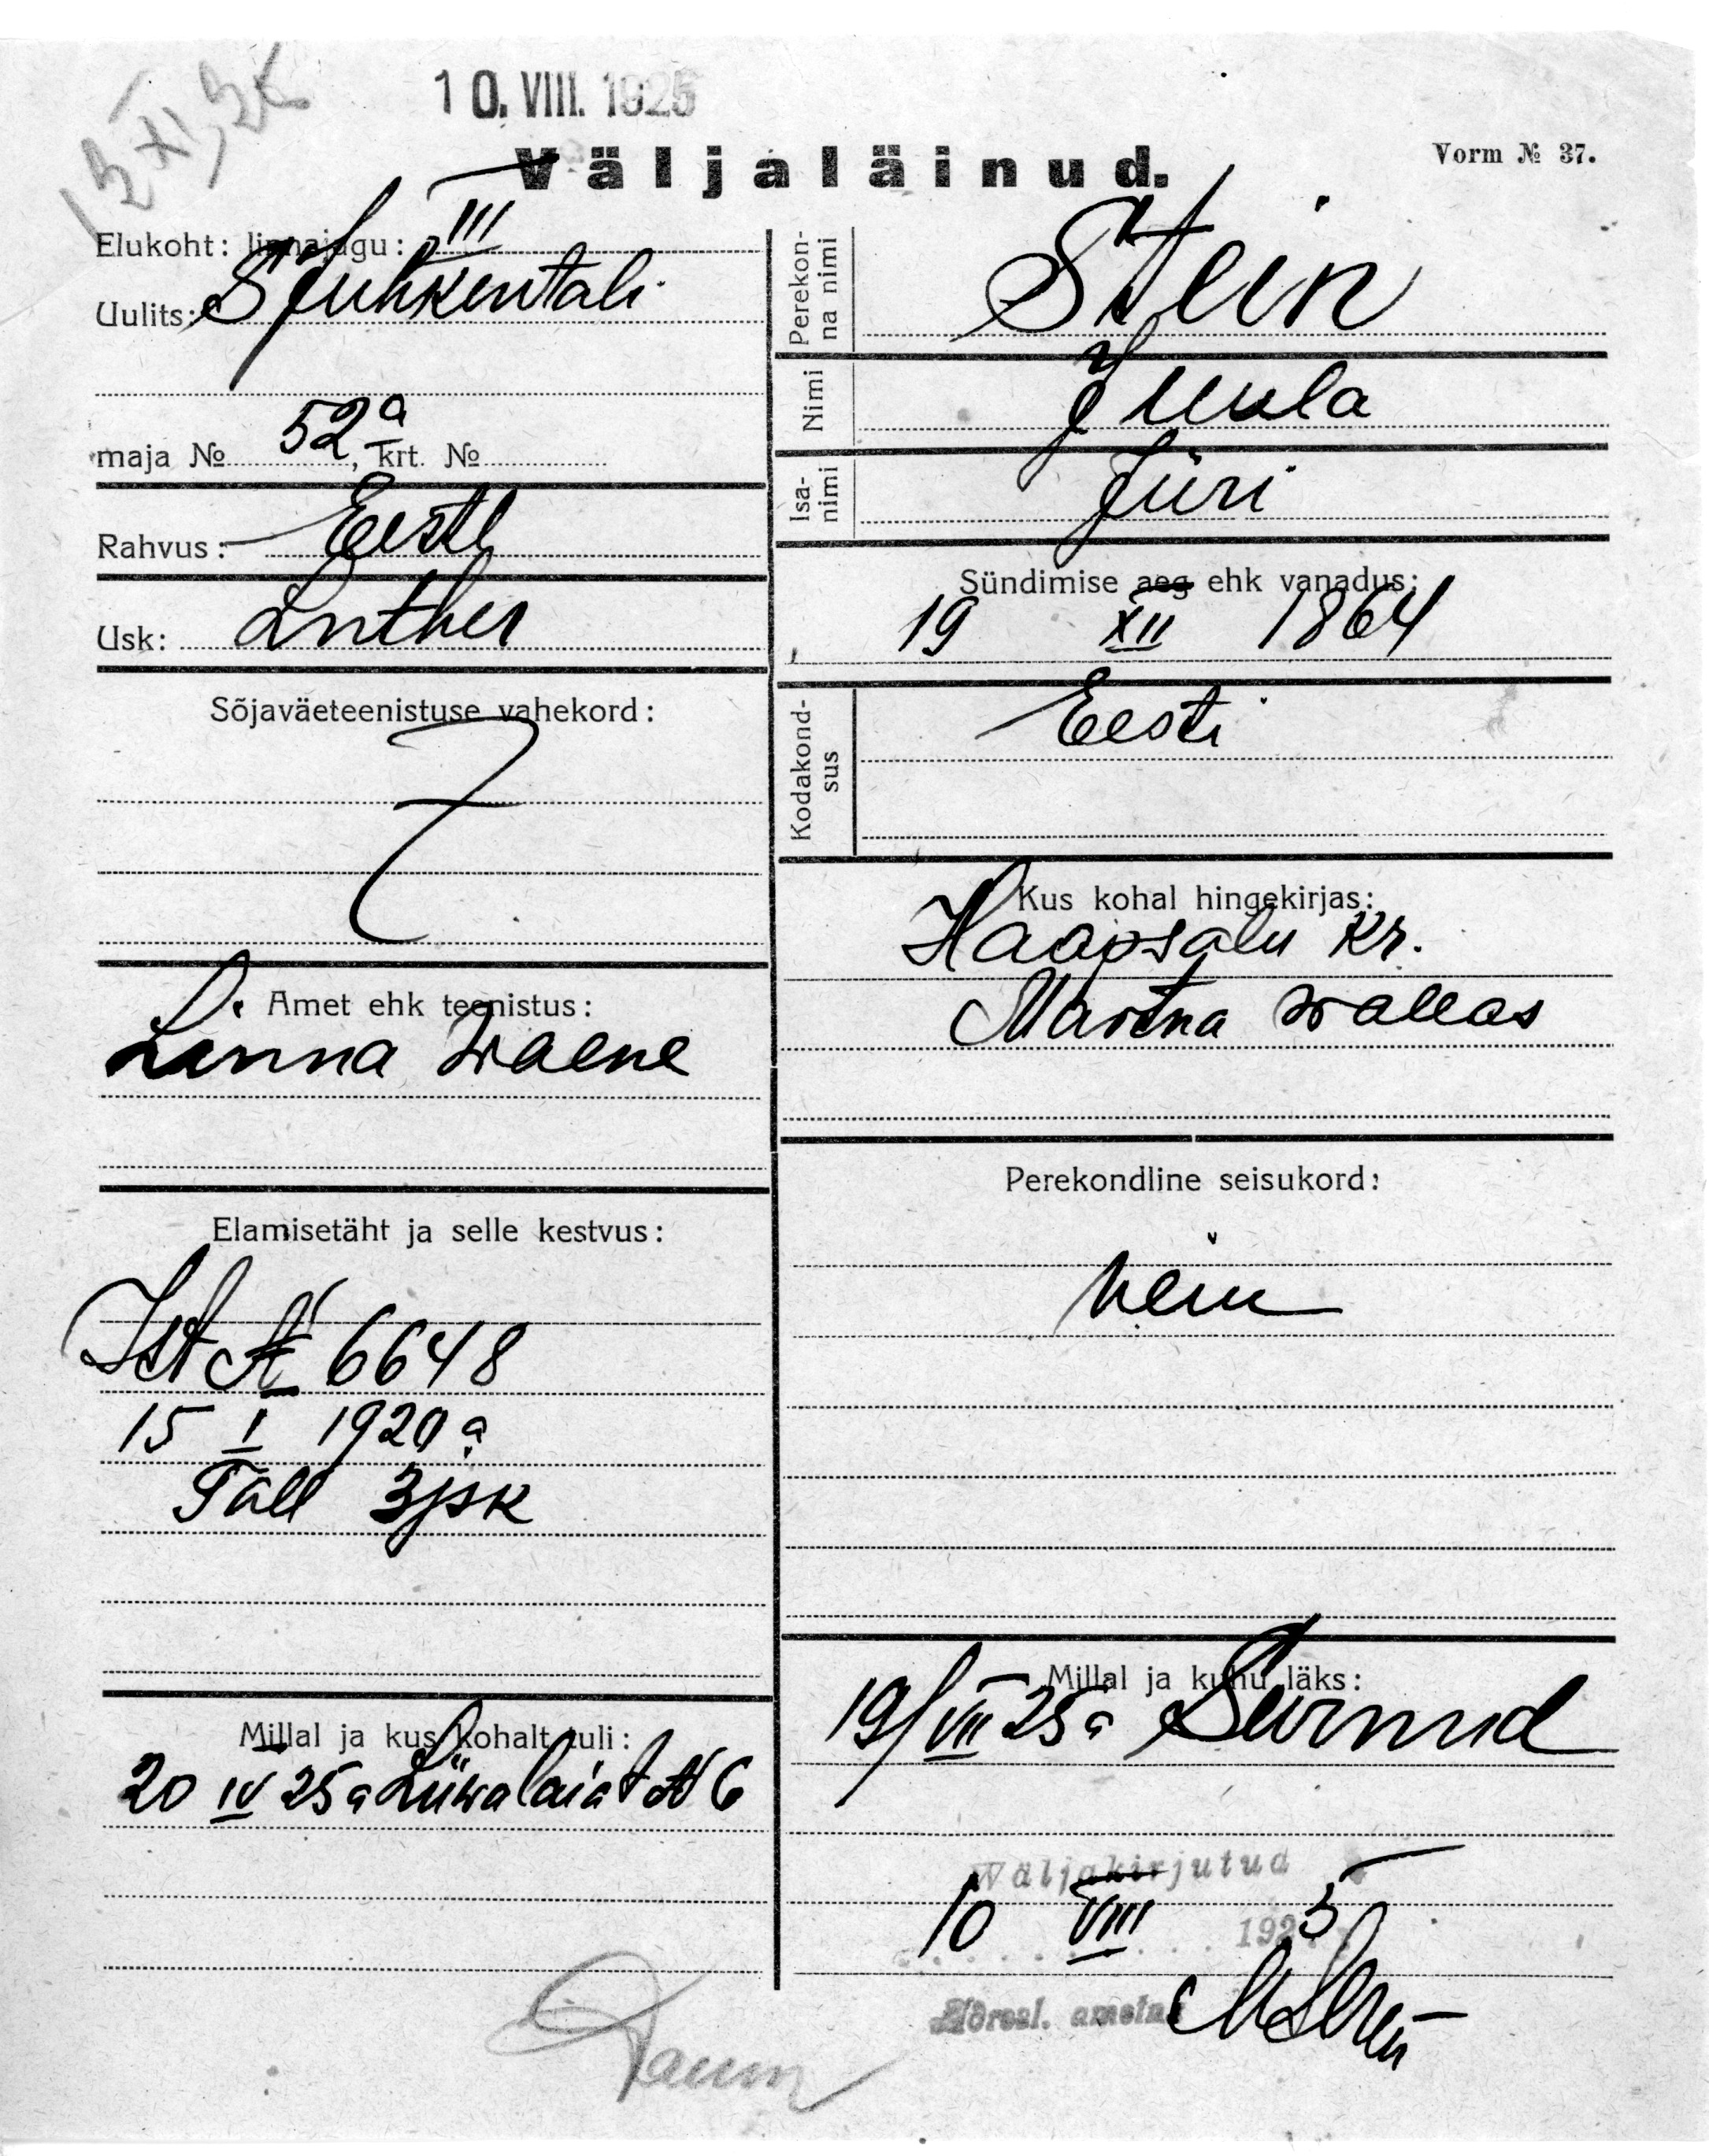 10. VIII. 1925
Väljaläinud.
Vorm № 37.
Elukoht: linnajagu: III
Uulits: S Juhkentali
maja № 52a, krt. №
Rahvus: Eesti
Usk: Luther
Sõjaväeteenistuse vahekord:
Amet ehk teenistus:
Linna waene
Elamisetäht ja selle kestvus:
Ist № 6648
15 I 1920 a
Tall 3 jsk
Millal ja kus kohalt tuli:
20 IV 25 a Liiwalaia t № 6
Perekonna nimi
Stein
Nimi
Juula
Isanimi
Jüri
Sündimise aeg ehk vanadus:
19 XII 1864
Kodakondsus
Eesti
Kus kohal hingekirjas:
Haapsalu Kr.
Martna wallas
Perekondline seisukord:
Millal ja kuhu läks:
19/VII 25 a Surnud
Wäljakirjutud
10 VIII 1925